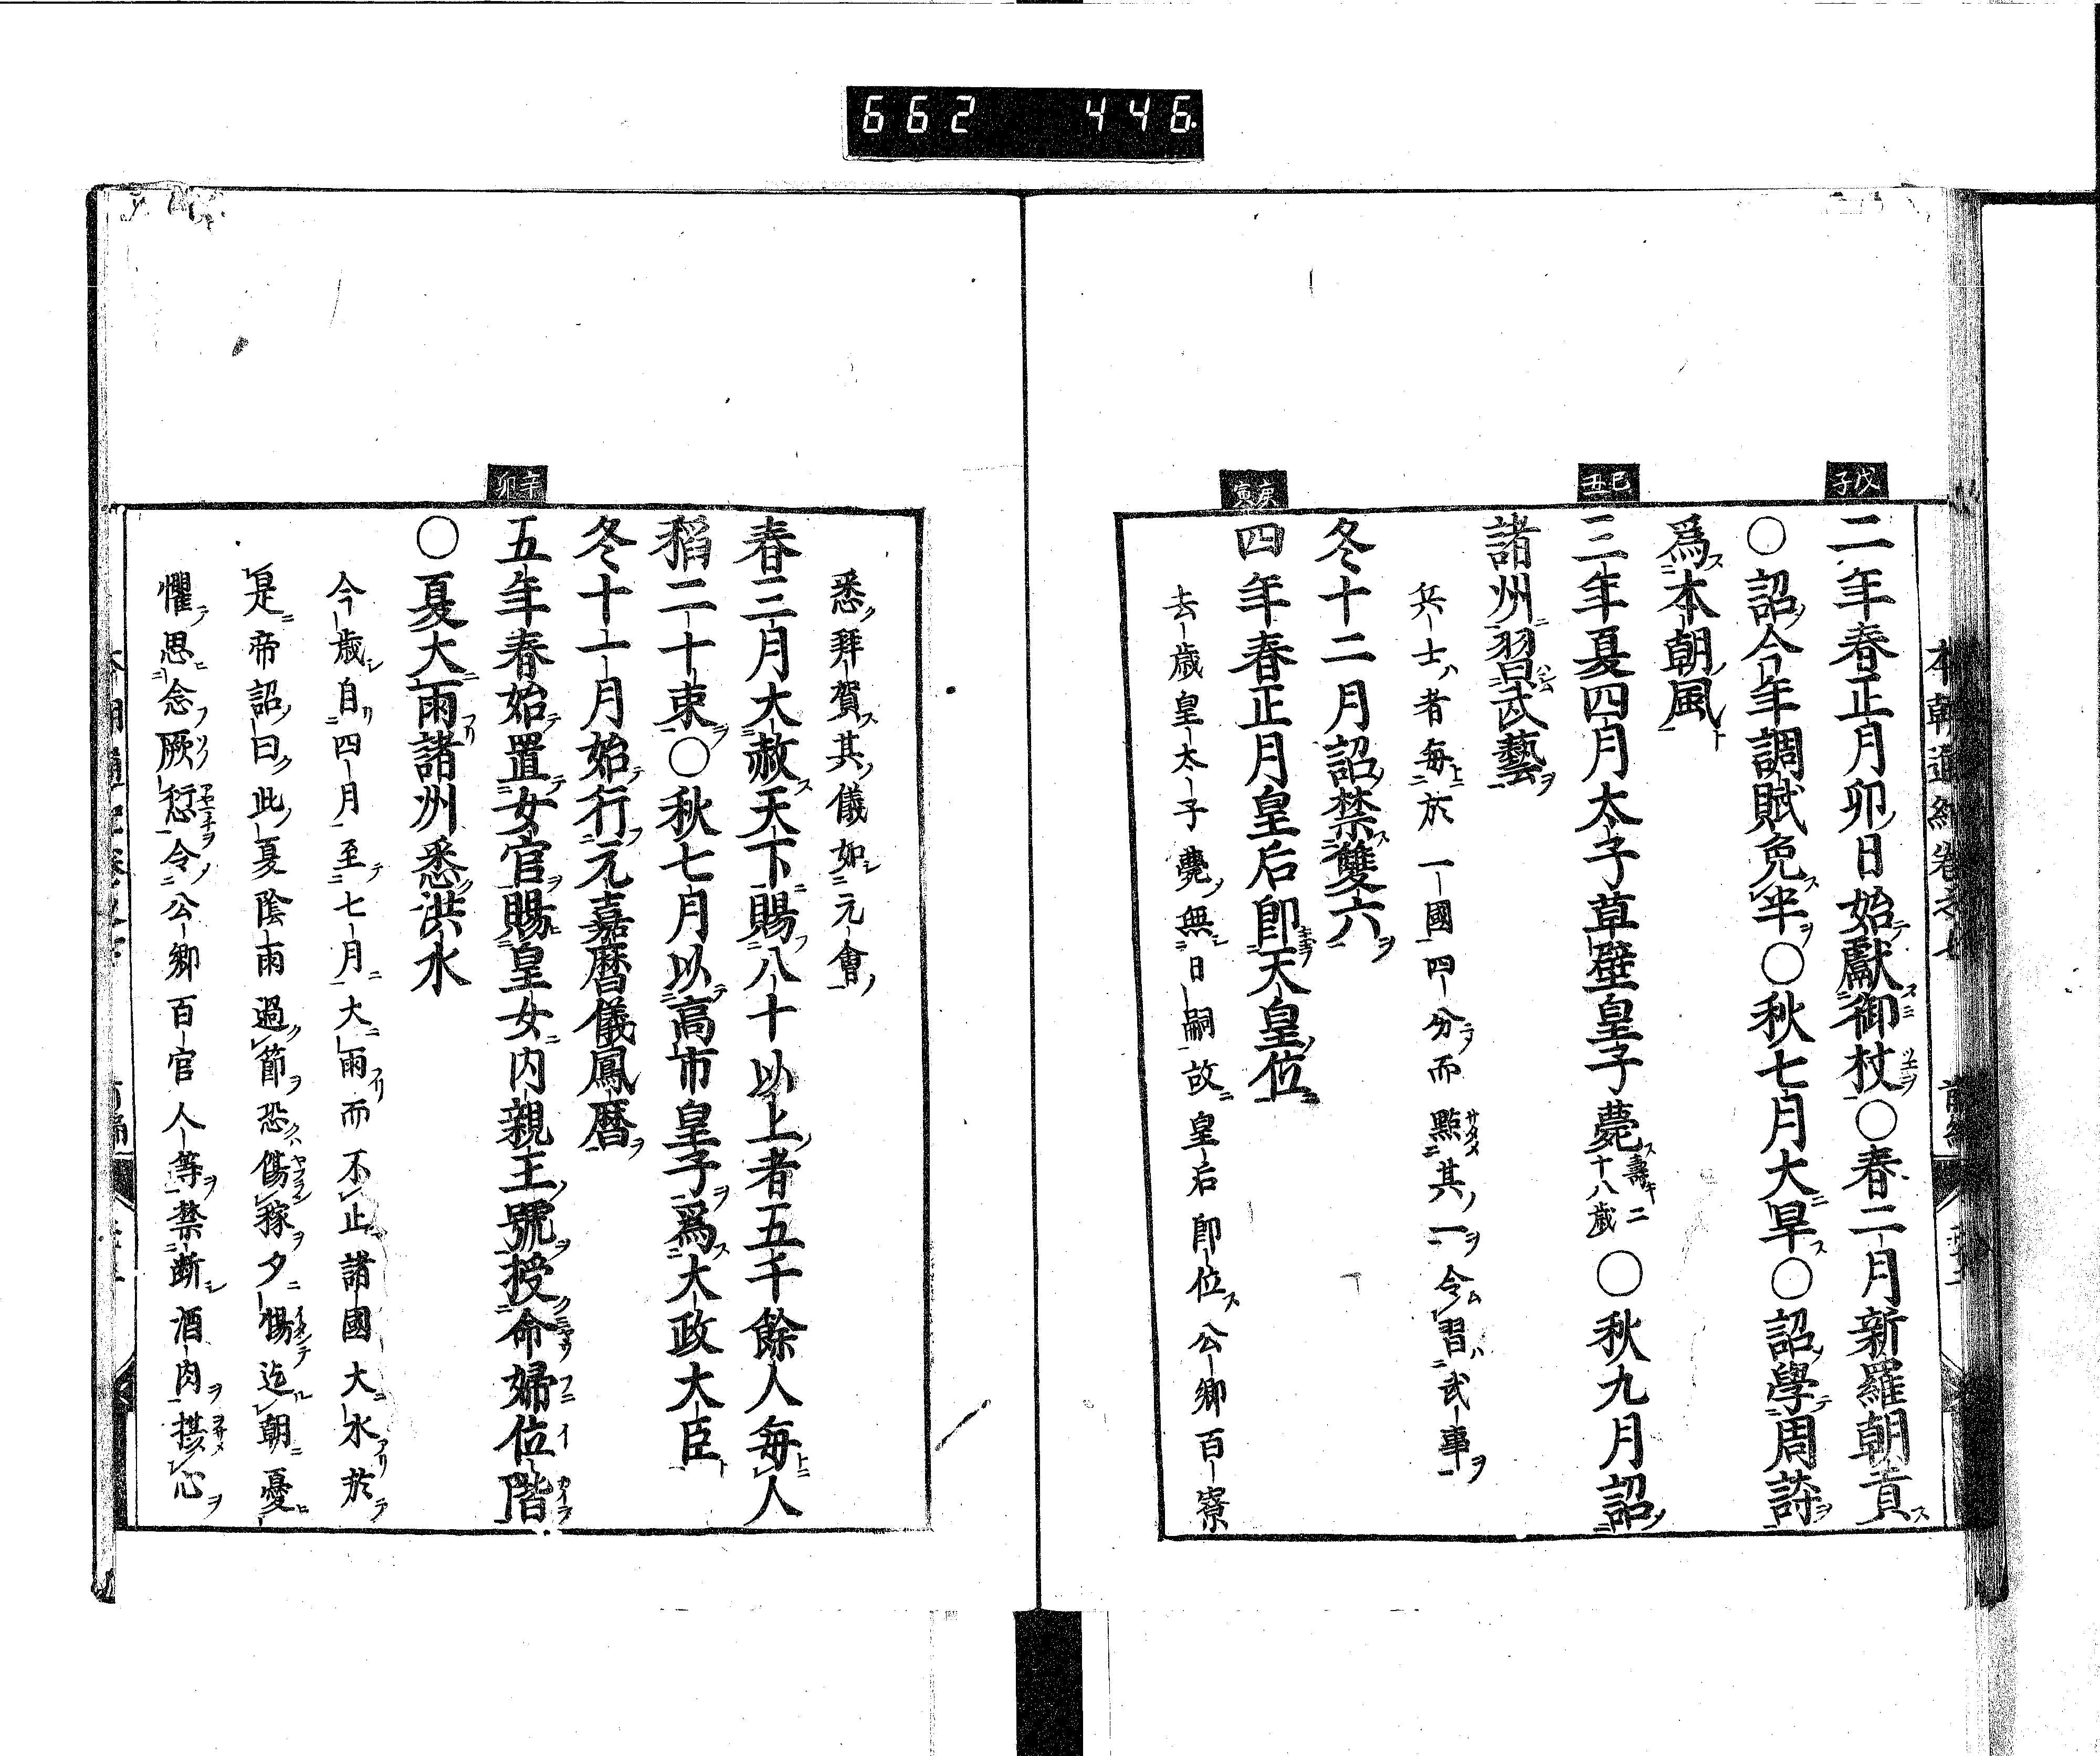 662 446
戊子
二年春正月卯日始獻御杖○春二月新羅朝貢
○詔今年調賦免半○秋七月大旱○詔學周詩
爲本朝風
己丑
三年夏四月太子草壁皇子薨壽二十八歳○秋九月詔
諸州習武藝
兵士者毎於一國四分而點其一令習武事
冬十二月詔禁雙六
庚寅
四年春正月皇后卽天皇位
去歳皇太子薨無日嗣故皇后卽位公卿百寮
悉拜賀其儀如元會
春三月大赦天下賜八十以上者五千餘人毎人
稻二十束○秋七月以高市皇子爲大政大臣
冬十一月始行元嘉暦儀鳳暦
辛卯
五年春始置女官賜皇女内親王號授命婦位階
○夏大雨諸州悉洪水
今歳自四月至七月大雨而不止諸國大水於
是帝詔曰此夏陰雨過節恐傷稼夕惕迄朝憂
懼思念厥愆令公卿百官人等禁断酒肉攝心